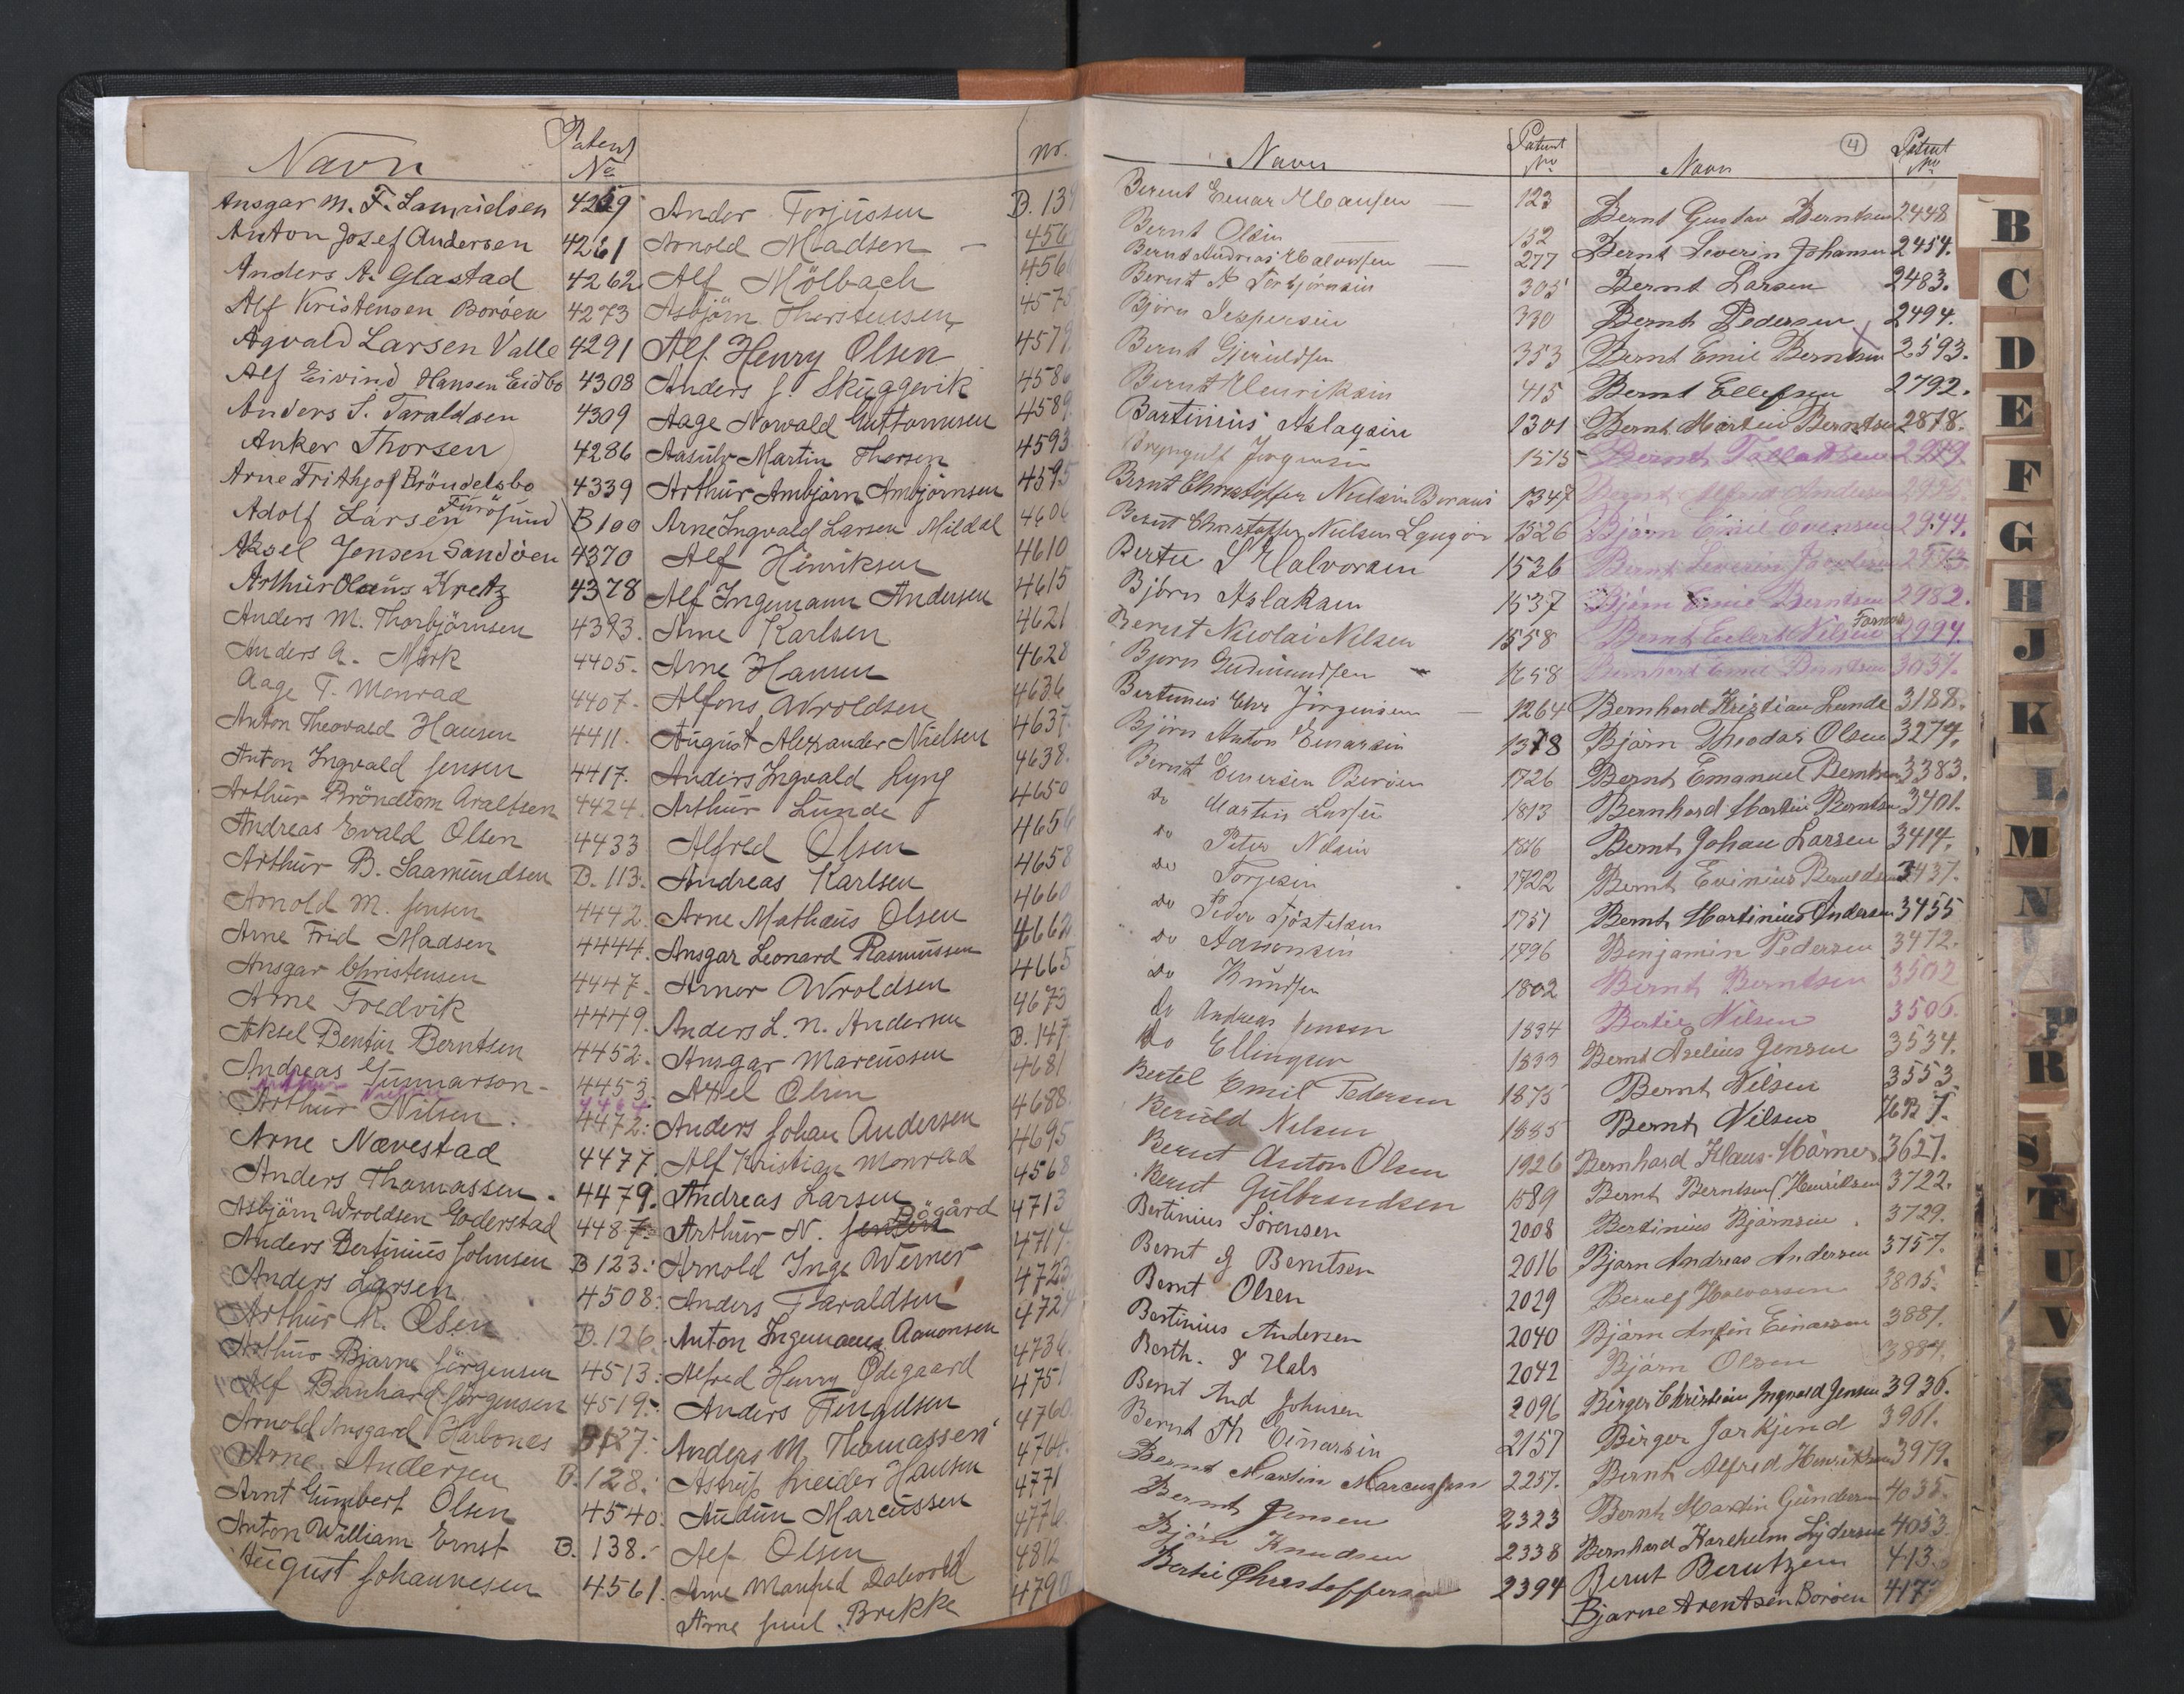 Navn Patent No
Ansgar M. F. Lauridsen 4259
Anton Josef Andersen 4261
Anders A. Glastad 4262
Alf Kristensen Boröen 4273
Agvald Larsen Valle 4291
Alf Eivind Hansen Eidbo 4308
Anders S. Taraldsen 4309
Anker Thorsen 4286
Arne Frithjof Bröndelsbo 4339
Adolf Larsen Furöjsund B 100
Aksel Jensen Sandöen 4370
Arthur Olaus Kretz 4378
Anders M. Thorbjörnsen 4393.
Anders A. Mörk 4405.
Aage T. Monrad 4407.
Anton Theovald Hansen 4411.
Anton Ingvald Jensen 4417.
Arthur Bröndlom Araltsen 4424
Andreas Evald Olsen 4433
Arthur B. Saamundsen B. 113.
Arnold M. Jensen 4442.
Arne Frid Madsen 4444.
Ansgar Christensen 4447.
Arne Fredvik 4449.
Aksel Bentin Berntsen 4452.
Andreas Gunnarson - 4453.
Arthur Nilsen. 4472.
Arne Nævestad 4477.
Anders Thomassen. 4479.
Asbjörn Wroldsen Goderstad 4487.
Anders Bertinius Johnsen B 123.
Anders Larsen 4508.
Arthur R. Olsen B. 126.
Arthur Bjarne Jörgensen 4513.
Alf Bernhard Jörgensen 4519.
Arnold Ansgard Garbones B 127.
Arne Andersen B. 128.
Arnt Gunbert Olsen 4540.
Anton William Ernst B. 138.
August Johannesen 4561.
nr.
Ander Torjussen B. 13
Arnold Madsen - 456
Alf Mölbach 456
Asbjörn Thorstensen 4575
Alf Henry Olsen 4579
Anders J. Skuggevik 4586
Aage Norwald Guttormsen 4589
Aasulv Martin Thorsen 4593
Arthur Ambjörn Ambjörnsen 4595
Arne Ingvald Larsen Mildal 4606
Alf Hinriksen 4610
Alf Ingemann Andersen 4615
Arne Karlsen 4621
Arne Hansen 4628
Alfons Wroldsen 4636
August Alexander Nielsen 4637.
Anders Ingvald Lyng 4638.
Arthur Lunde 4650
Alfred Olsen 4656
Andreas Karlsen 4658
Arne Mathæus Olsen 4660
Ansgar Leonard Rasmussen 4662
Arnor Wroldsen 4665
Anders L. N. Andersen 4673
Ansgar Marcussen B. 147
Axel Olsen 4681
Anders Johan Andersen 4688
Alf Kristian Monrad 4695
Andreas Larsen 4568
Arthur N. Jensen Bögård 4713
Arnold Inge Werner 4714
Anders Taraldsen 4723
Anton Ingemann Aanonsen 472
Alfred Henry Ödegaard 4736
Anders Tengelsen 4751
Anders M. Thomassen 4760
Astrup Kneider Hansen 4764.
Audun Marcussen 4771
Alf Olsen 4776
Arne Manfred Dalevold 4812
Arne Juul Brekke 4790
Navn Patent No
Berent Einar Hansen — 123
Bernt Olsen 152
Bernt Andreas Halvorsen — 277
Bernt A Torbjörnsen 305
Björn Jespersen 330
Bernt Gjeruldsen 353
Bernt Henriksen 415
Bartinius Aslagsen 1301
Bryngulf Jörgensen 1515
Bernt Christoffer Nielsen Boröen 1347
Bernt Christoffer Nielsen Lyngör 1526
Bertie S Halvorsen 1536
Björn Aslaksen 1537
Bernt Nicolai Nilsen 1558
Bjorn Gudmundsen 1658
Bertinius Chr Jörgensen — 1264
Björn Anton Einarsen 1378
Bernt Evensen Boröen 1726
do Martin Larsen 1813
do Peter Nilsen 1816
do Torjesen 1722
do Peder Tjöstelsen 1751
do Aanonsen 1796
do Knudsen 1802
do Andreas Jensen 1834
do Ellingsen 1833
Bertel Emil Pedersen 1875
Beruld Nilsen 1885
Bernt Anton Olsen 1926
Bernt Gulbrandsen 1589
Bertinius Sörensen 2008
Bernt G Berntsen 2016
Bernt Olsen 2029
Bertinius Andersen 2040
Berth. S Hals 2042
Bernt And Johnsen 2096
Bernt Th Einarsen 2157
Bernt Martin Marcussen 2257.
Bernt Jensen 2323
Björn Knudsen 2338
Bertie Christoffersen 2394
Navn 4 Patent No
Bernt Gustav Berntsen 2448
Bernt Severin Johansen 2454.
Bernt Larsen 2483.
Bernt Pedersen 2494.
Bernt Emil Berntsen 2593.
Bernt Ellefsen 2792.
Bernt Martin Berntsen 2878.
Bernt Tallaksen 2919.
Bernt Alfred Andersen
Björn Emil Evensen 2944.
Bernt Severin Jacobsen 2973.
Björn Emil Berntsen 2982.
Bernt Eilert Nilsen 2994.
Bernhard Emil Berntsen 3037.
Bernhard Kristian Lunde 3188.
Björn Theodor Olsen 3279.
Bernt Emanuel Berntsen 3383.
Bernhard Martin Berntsen 3401.
Bernt Johan Larsen 3414.
Bernt Evinius Beruldsen 3437.
Bernt Martinius Andersen 3455
Benjamin Pedersen 3472.
Bernt Berntsen 3502
Bertie Nilsen 3506.
Bernt Aselius Jensen 3534.
Bernt Nilsen 3553.
Bernt Nilsen
Bernhard Klaus Mörner 3621.
Bernt Berntsen (Henriksen 3722.
Bertinius Björnsen. 3729.
Bjorn Andreas Andersen 3757.
Beruld Halvorsen 3805.
Björn Anfin Einarsen 3881.
Björn Olsen 3884.
Birger Christian Ingvald Jensen 3936.
Birger Jarkjend 3961.
Bernt Alfred Henriksen 3979.
Bernt Martin Gundersen 4035.
Bernhard Karelhelm Lydersen 4053.
Bernt Berntzen 413
Bjarne Arentsen Boröen 417
B
C
D
E
F
G
H
J
K
L
M
N
P
R
S
T
U
V